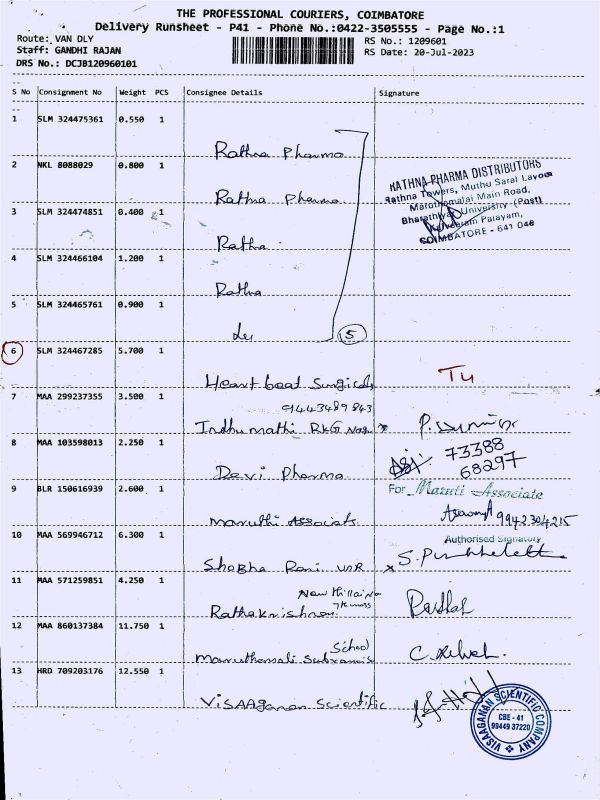 THE PROFESSIONAL COURIERS, COIMBATORE
Delivery Runsheet - P41 - Phone No.:0422-3505555 - Page No.:1
Route: VAN DLY
RS No.: 1209601
Staff: GANDHI RAJAN
RS Date: 20-Jul-2023
DRS No.: DCJB120960101
S No Consignment No Weight PCS Consignee Details Signature
1 SLM 324475361 0.550 1
Rathna Pharma
2 NKL 8088029 0.800 1
Rathna Pharma
RATHNA PHARMA DISTRIBUTORS
Rathna Towers, Muthu Saral Layout
Maruthamalai Main Road,
Bharathiyar University (Post)
Palayam,
COIMBATORE - 641 046
3 SLM 324474851 0.400 1
Rathna
4 SLM 324466104 1.200 1
Rathna
5 SLM 324465761 0.900 1
5
6 SLM 324467285 5.700 1
Heart beat Surgicals
7 MAA 299237355 3.500 1
9443489843
Indhumathi RKG Nagar
8 MAA 103598013 2.250 1
73388
68297
Devi Pharma
9 BLR 150616939 2.600 1
For Maruti Associate
9942304215
Maruthi Associats
10 MAA 569946712 6.300 1
Authorised Signatory
Shobha Rani
11 MAA 571259851 4.250 1
New
Rathakrishnan
12 MAA 860137384 11.750 1
School
Maruthamali
13 HRD 709203176 12.550 1
ViSAAganan Scientific
VISAAGANAN SCIENTIFIC COMPANY
CBE - 41
99449 37220